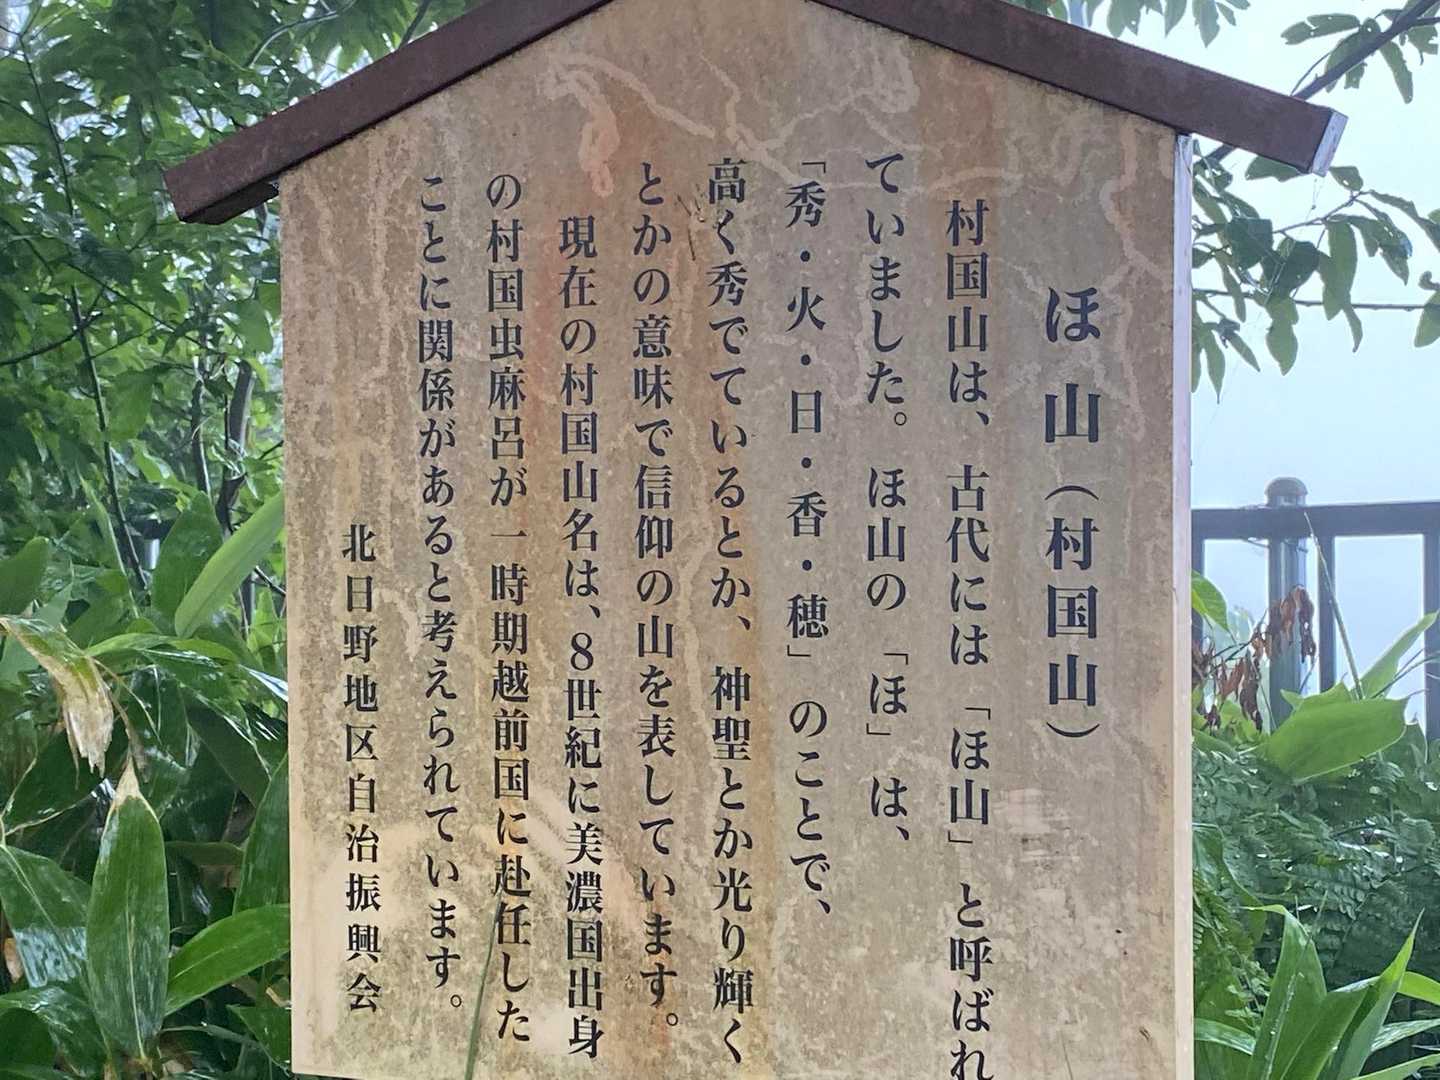 ほ山（村国山）
村国山は、古代には「ほ山」と呼ばれ
ていました。ほ山の「ほ」は、
「秀・火・日・香・穂」のことで、
高く秀でているとか、神聖とか光り輝く
とかの意味で信仰の山を表しています。
現在の村国山名は、8世紀に美濃国出身
の村国虫麻呂が一時期越前国に赴任した
ことに関係があると考えられています。
北日野地区自治振興会